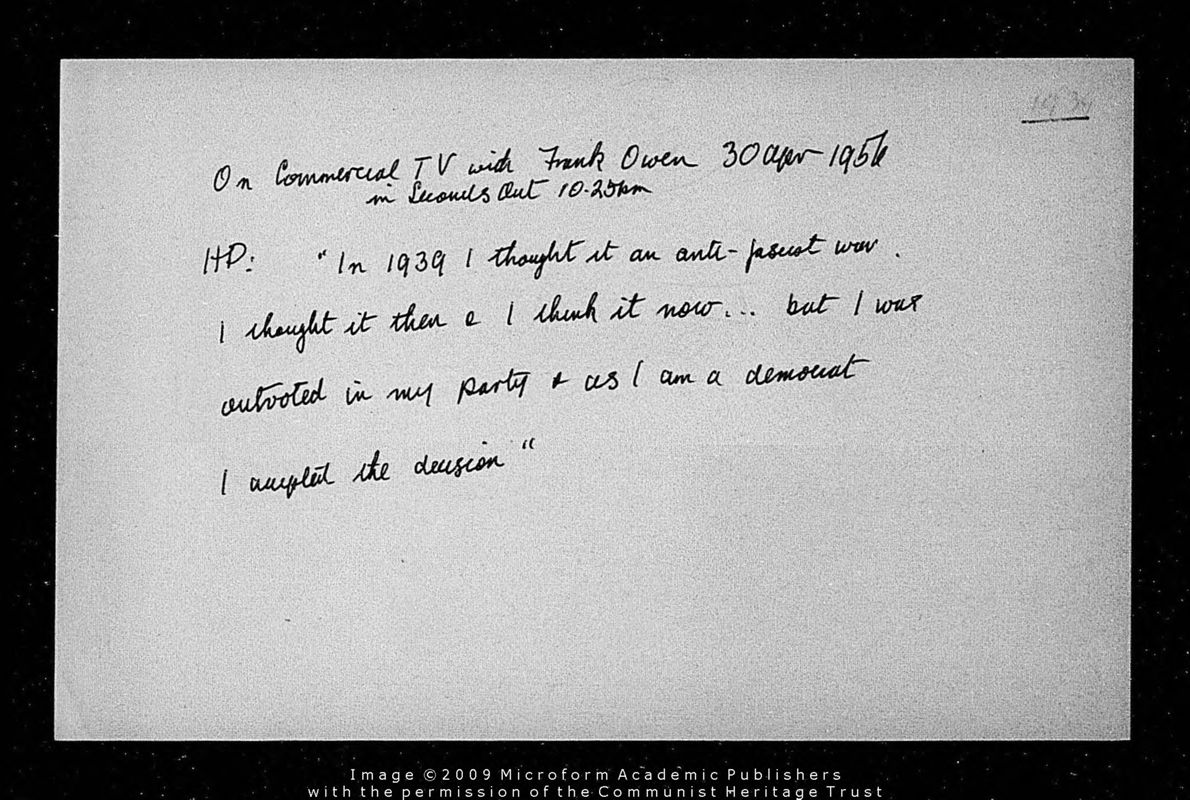 On Commercial TV with Frank Owen 30 Apr 1956
in Seconds Out 10-25pm
HP: "In 1939 I thought it an anti-fascist war.
I thought it then & I think it now... but I was
outvoted in my party & as I am a democrat
I accepted the decision"
Image ©2009 Microform Academic Publishers
with the permission of the Communist Heritage Trust